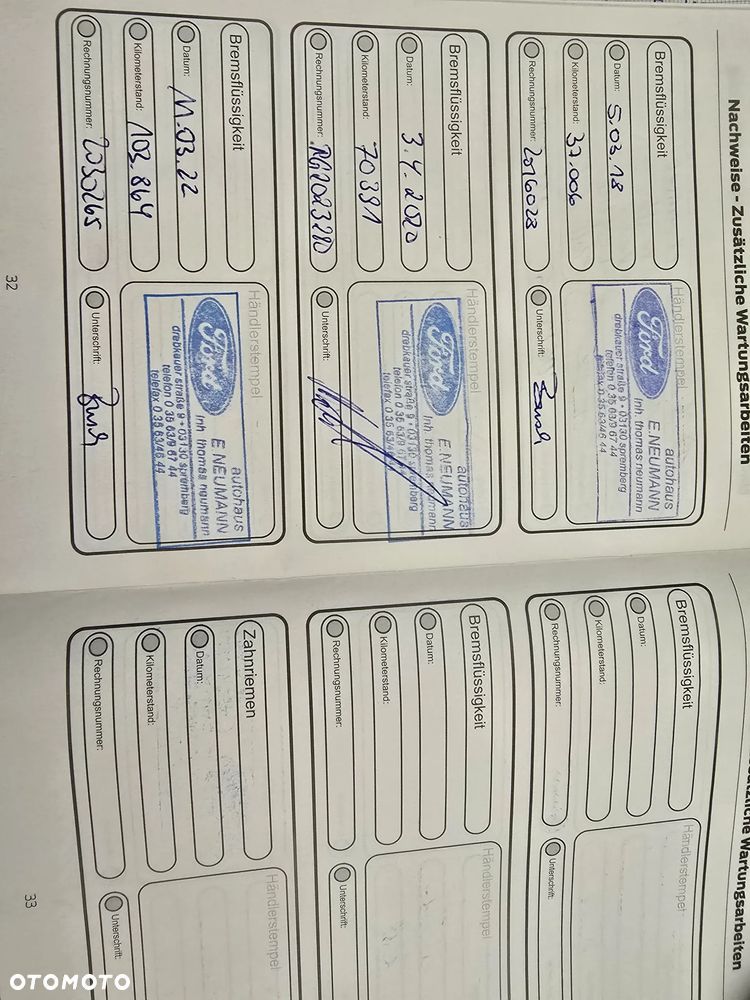 Nachweise - Zusätzliche Wartungsarbeiten
Bremsflüssigkeit
Datum: 5.03.18
Kilometerstand: 37.006
Rechnungsnummer: 2016028
Händlerstempel
Ford
autohaus
E.NEUMANN
Inh. thomas neumann
drebkauer straße 9 • 03130 spremberg
telefon 0 35 63/9 67 44
telefax 0 35 63/46 44
Unterschrift:
Bremsflüssigkeit
Datum: 3.4.2020
Kilometerstand: 70391
Rechnungsnummer: RG2023280
Händlerstempel
Ford
autohaus
E.NEUMANN
Inh. thomas neumann
drebkauer straße 9 • 03130 spremberg
telefon 0 35 63/9 67
telefax 0 35 63/
Unterschrift:
Bremsflüssigkeit
Datum: 11.03.22
Kilometerstand: 103.864
Rechnungsnummer: 2030265
Händlerstempel
Ford
autohaus
E.NEUMANN
Inh. thomas neumann
drebkauer straße 9 • 03130 spremberg
telefon 0 35 63/9 67 44
telefax 0 35 63/46 44
Unterschrift:
32
Zusätzliche Wartungsarbeiten
Bremsflüssigkeit
Datum:
Kilometerstand:
Rechnungsnummer:
Händlerstempel
Unterschrift:
Bremsflüssigkeit
Datum:
Kilometerstand:
Rechnungsnummer:
Händlerstempel
Unterschrift:
Zahnriemen
Datum:
Kilometerstand:
Rechnungsnummer:
Händlerstempel
Unterschrift:
33
OTOMOTO